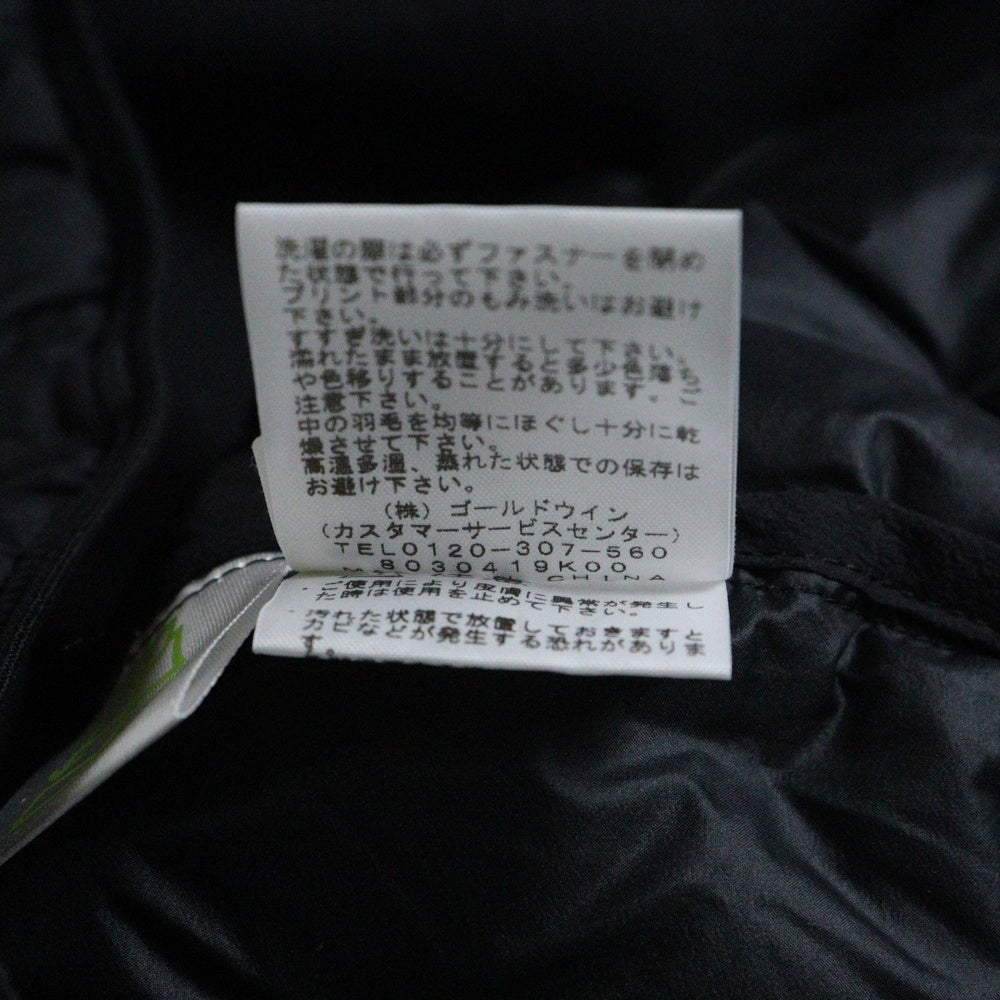 洗濯の際は必ずファスナーを閉め
た状態で行って下さい。
プリント部分のもみ洗いはお避け
下さい。
すすぎ洗いは十分にして下さい。
濡れたまま放置すると多少色落ち
や色移りすることがあります。ご
注意下さい。
中の羽毛を均等にほぐし十分に乾
燥させて下さい。
高温多湿、蒸れた状態での保存は
お避け下さい。
(株)ゴールドウイン
(カスタマーサービスセンター)
TEL0120-307-560
8030419K00
CHINA
ご使用により皮膚に異常が発生し
た時は使用を止めて下さい。
・汚れた状態で放置しておきますと
カビなどが発生する恐れがありま
す。